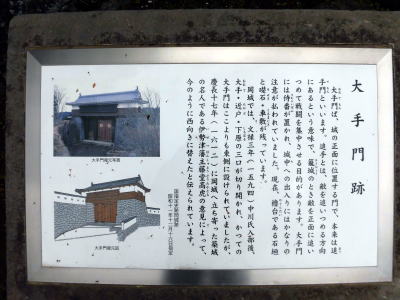 大手門跡
大手門とは、城の正面に位置する門で、本来は追
手門といいます。追手とは、敵を追いつめる方向
にあるという意味で、籠城のとき敵を正面に追い
つめて戦闘を集中させる目的があります。大手門
には侍番が置かれ、城中への出入りにはかなりの
注意が払われていました。現在、櫓台である石垣
と礎石・車敷が残っています。
岡城では、文禄三年（一五九四）中川氏入部後、
大手・近戸・下原の三口が切り開かれ、かつての
大手門はここよりも東側に設けられていましたが、
慶長十七年（一六一二）に岡城へ立ち寄った築城
の名人である伊勢津藩主藤堂高虎の意見によって、
今のように西向きに替えたと伝えられています。
国指定史跡岡城跡
昭和十一年十二月十六日指定
大手門復元写真
大手門復元図